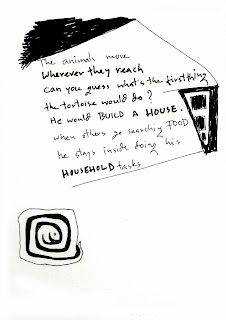 The animals move
Wherever they reach
can you guess what's the first thing
the tortoise would do?
He would BUILD A HOUSE.
when others go searching FOOD
he stays inside doing his
HOUSEHOLD tasks